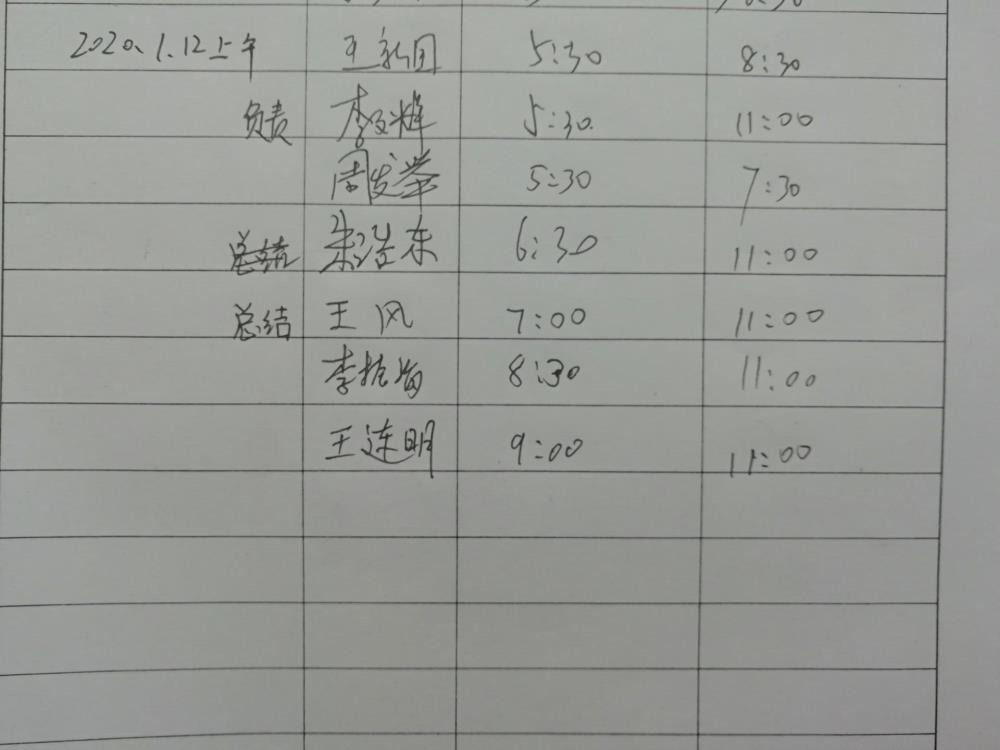 2020.1.12上午 王新国 5:30 8:30
负责 李文辉 5:30. 11:00
周发举 5:30 7:30
总结 朱浩东 6:30 11:00
总结 王风 7:00 11:00
李振海 8:30 11:00
王连明 9:00 11:00